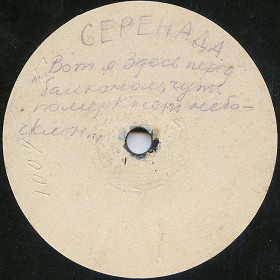 СЕРЕНАДА
"Вот я здесь перед
балконом, чуть
померкнет небо-
склон..."
1001